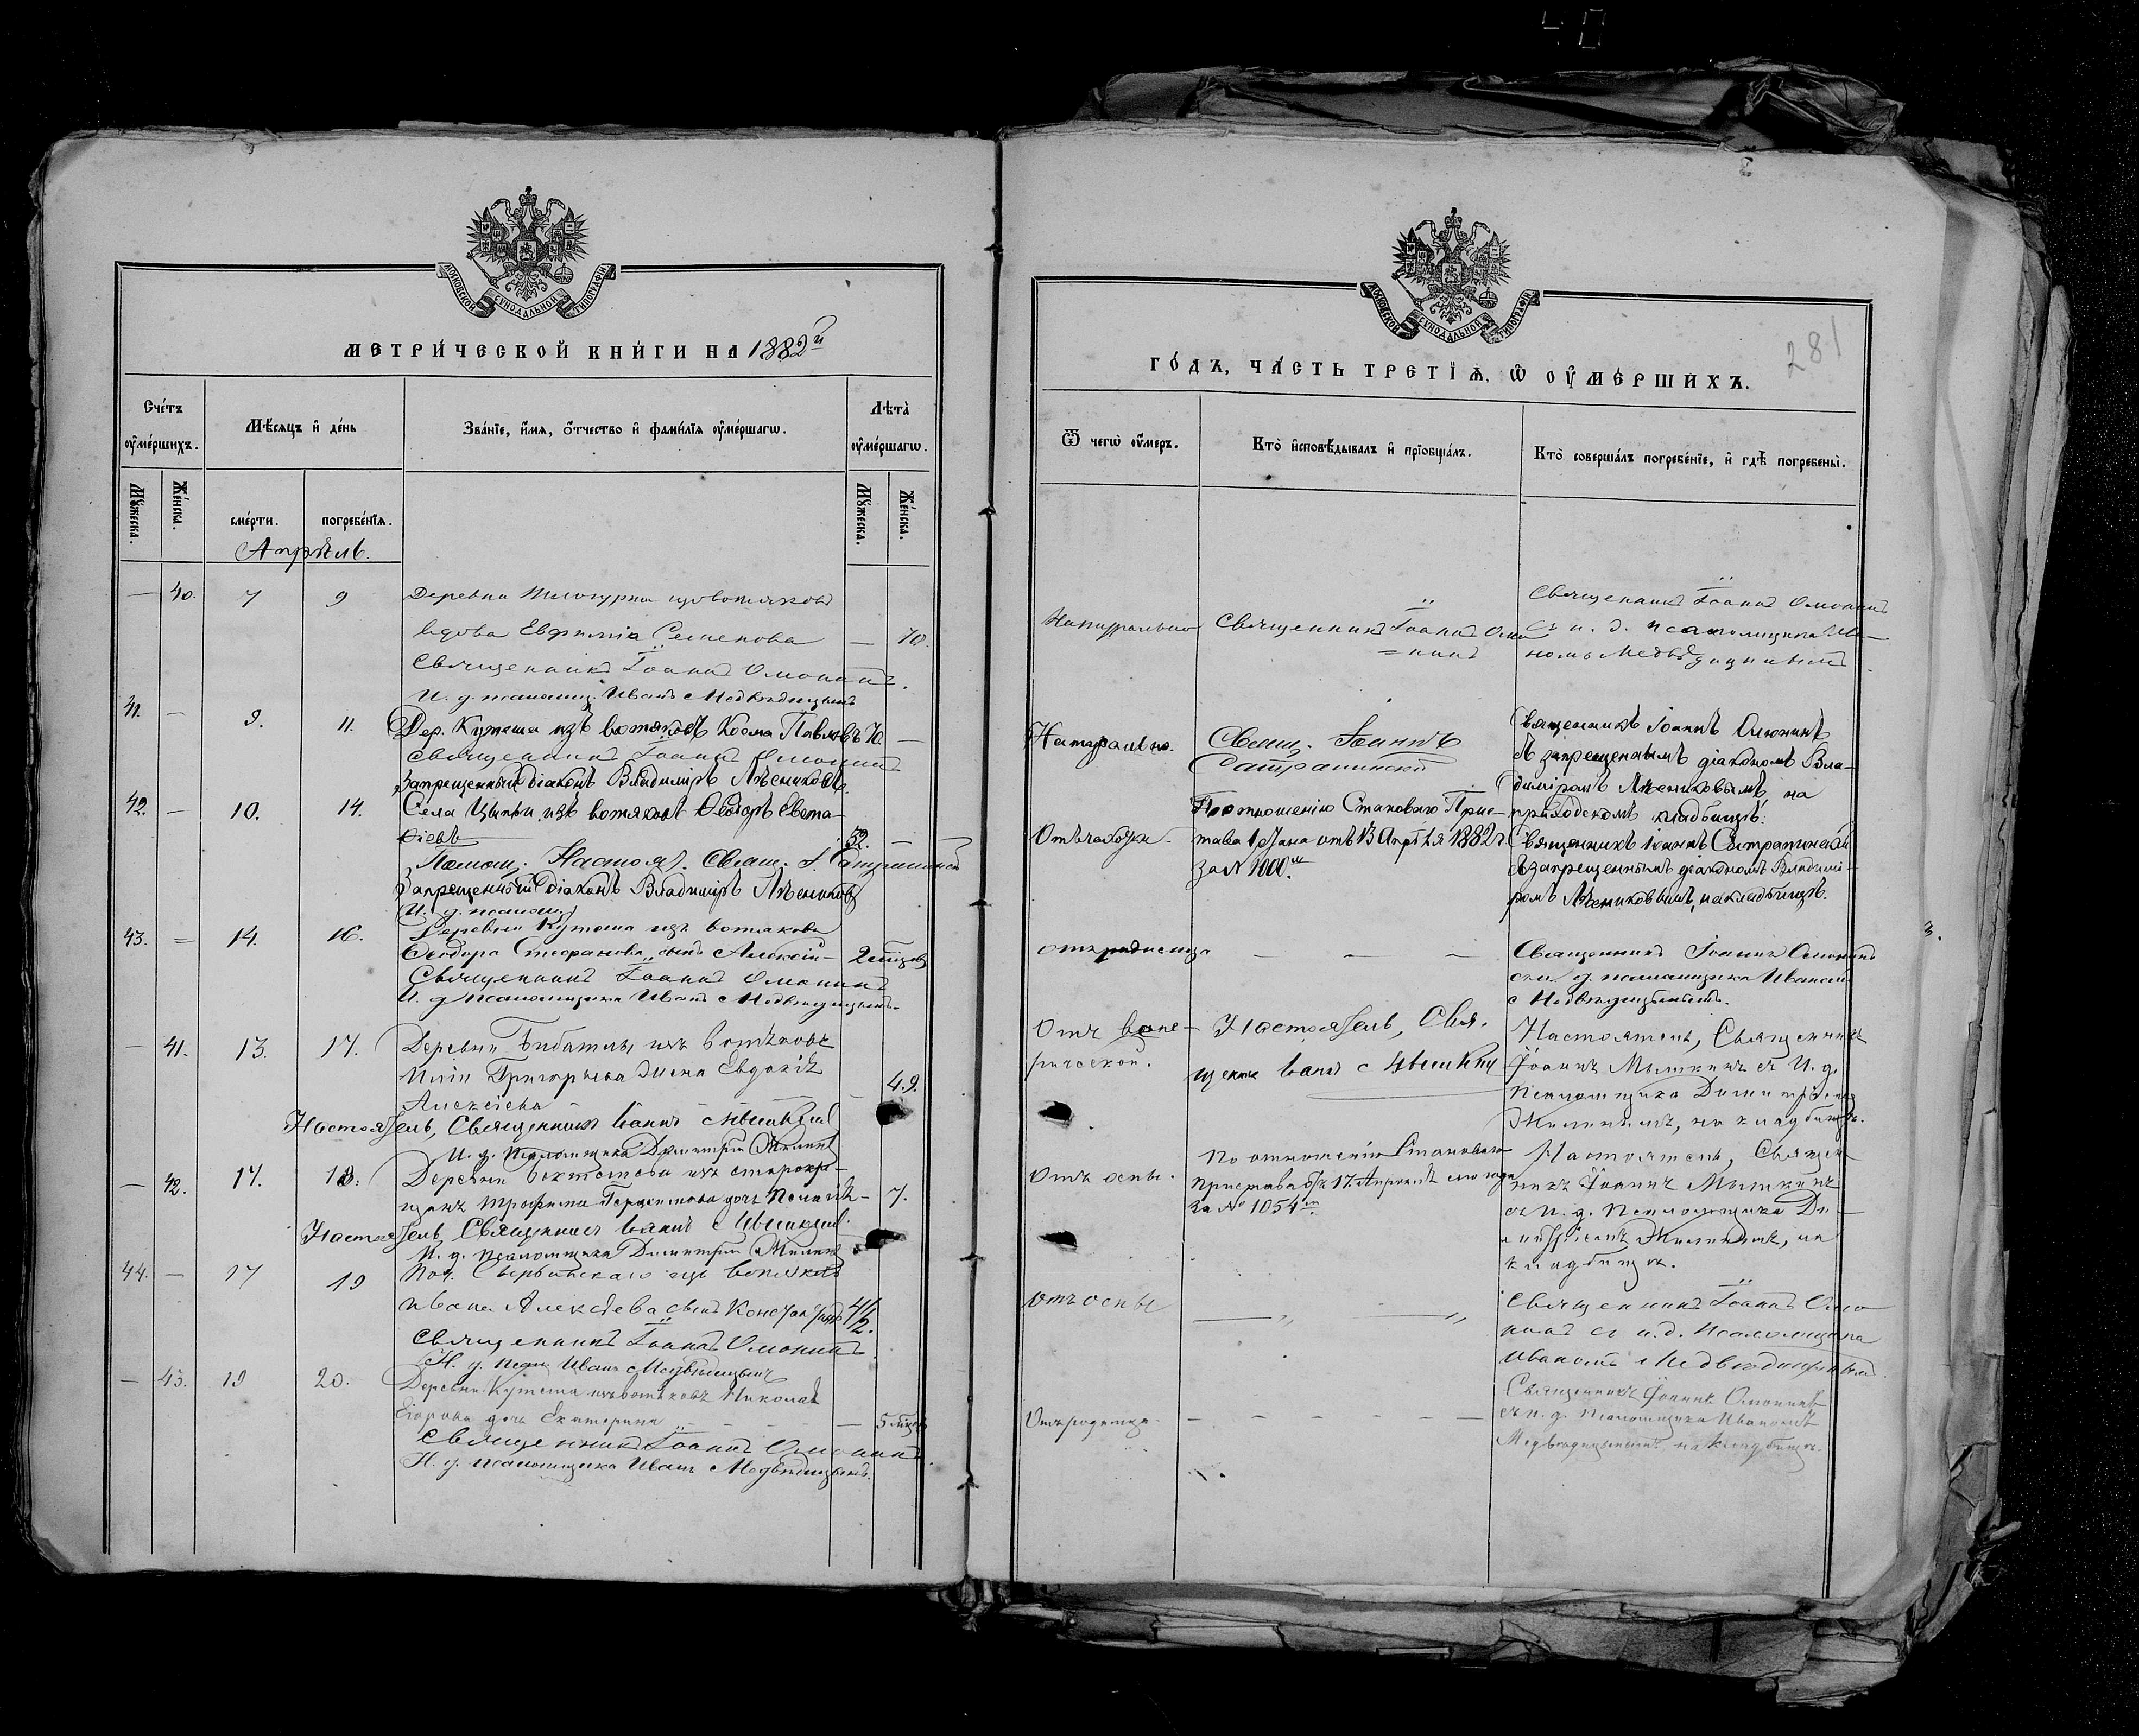 МОСКОВСКОЙ СѴНОДАЛЬНОЙ ТИПОГРАФІИ
МЕТРИ́ЧЕСКОЙ КНИ́ГИ НА 1882й
Сче́тъ ѹ҆ме́ршихъ.
Мѣ́сяцъ и҆ де́нь
Зва́нїе, и҆́мя, ѻ҆́тчество и҆ фами́лїя ѹ҆ме́ршагѡ.
Лѣта̀ ѹ҆ме́ршагѡ.
Мѹ́жеска.
Же́нска.
сме́рти.
погребе́нїя.
Мѹ́жеска.
Же́нска.
Апрѣль.
— 40. 7 9 Деревни изъ вотяковъ
вдова Евфимія Семенова — 70.
Священникъ Іоаннъ Омонинъ.
И. д. псаломщ. Иванъ Медвѣдицынъ
41. — 9. 11. Дер. Кутеша изъ вотяковъ Косма Павловъ 70. —
Священникъ Іоаннъ Омонинъ
Запрещенный діаконъ Владиміръ
42. — 10. 14. Села Ципьи изъ вотяковъ Ѳеодоръ Евста-
ѳіевъ 52. —
Помощ. Настоят. Свящ. І. Сатрапинскій
Запрещенный діаконъ Владиміръ
И. д. псаломщ.
43. = 14. 16. Деревни Кутеша изъ вотяковъ
Ѳеодора Стефанова сынъ Алексій — 2 мѣсяц.
Священникъ Іоаннъ Омонинъ
И. д. псаломщика Иванъ Медвѣдицынъ.
— 41. 13. 17. Деревни изъ вотяковъ
Григорьева жена Евдокія
Алексѣева — 49.
Настоятель, Священникъ Іоаннъ Мышкинъ
И. д. Псаломщика Димитрій Жилинъ
— 42. 17. 18. Деревни изъ старокре-
щенъ Трофима дочь Пелагія — 7.
Настоятель, Священникъ Іоаннъ Мышкинъ.
И. д. Псаломщика Димитрій Жилинъ
44. — 17 19 Поч. изъ вотяковъ
Ивана Алексѣева сынъ Константинъ 4 1/2.
Священникъ Іоаннъ Омонинъ.
И. д. псал. Иванъ Медвѣдицынъ
— 43. 19 20. Деревни Кутеша изъ вотяковъ Николая
Егорова дочь Екатерина — 5 мѣсяц.
Священникъ Іоаннъ Омонинъ.
И. д. псаломщика Иванъ Медвѣдицынъ.
МОСКОВСКОЙ СѴНОДАЛЬНОЙ ТИПОГРАФІИ
281
ГО́ДЪ, ЧА́СТЬ ТРЕ́ТЇѦ, Ѡ҆ ОУ҆МЕ́РШИХЪ.
Ѿ чегѡ̀ ѹ҆́меръ.
Кто̀ и҆сповѣ́дывалъ и҆ прїѡбща́лъ.
Кто̀ соверша́лъ погребе́нїе, и҆ гдѣ̀ погребены̀.
Натурально Священникъ Іоаннъ Омо=
=нинъ
Священникъ Іоаннъ Омонинъ
съ и. д. псаломщика Ива-
номъ Медвѣдицинымъ
Натурально. Свящ. Іоаннъ
Сатрапинскій
Священникъ Іоаннъ Омонинъ
съ запрещеннымъ діакономъ Вла-
диміромъ на
приходскомъ кладбищѣ.
Отъ чахотки. По отношенію Становаго Прис-
тава 1 Стана отъ 13 Апрѣля 1882 г.
за № 1000.м
Священникъ Іоаннъ Сатрапинскій
съ запрещеннымъ діакономъ Владимі-
ромъ на кладбищѣ.
отъ родимца — — —
Священникъ Іоаннъ Омонинъ
съ и. д. псаломщика Иваномъ
Медвѣдицынымъ.
Отъ вене-
рической.
Настоятель, Свя-
щенн. Іоаннъ Мышкинъ
Настоятель, Священникъ
Іоаннъ Мышкинъ съ И. д.
Псаломщика Димитріемъ
Жилинымъ, на кладбищѣ.
Отъ оспы. По отношенію Становаго
Пристава отъ 17 Апрѣля сего года
за № 1054м
Настоятель, Священ-
никъ Іоаннъ Мышкинъ
съ И. д. Псаломщика Ди-
митріемъ Жилинымъ, на
кладбищѣ.
Отъ оспы — „ — „
Священникъ Іоаннъ Омо
нинъ съ и. д. псаломщика
Иваномъ Медвѣдицынымъ.
Отъ родимца. — — — — — —
Священникъ Іоаннъ Омонинъ
съ и. д. псаломщика Иваномъ
Медвѣдицынымъ, на кладбищѣ.
3.